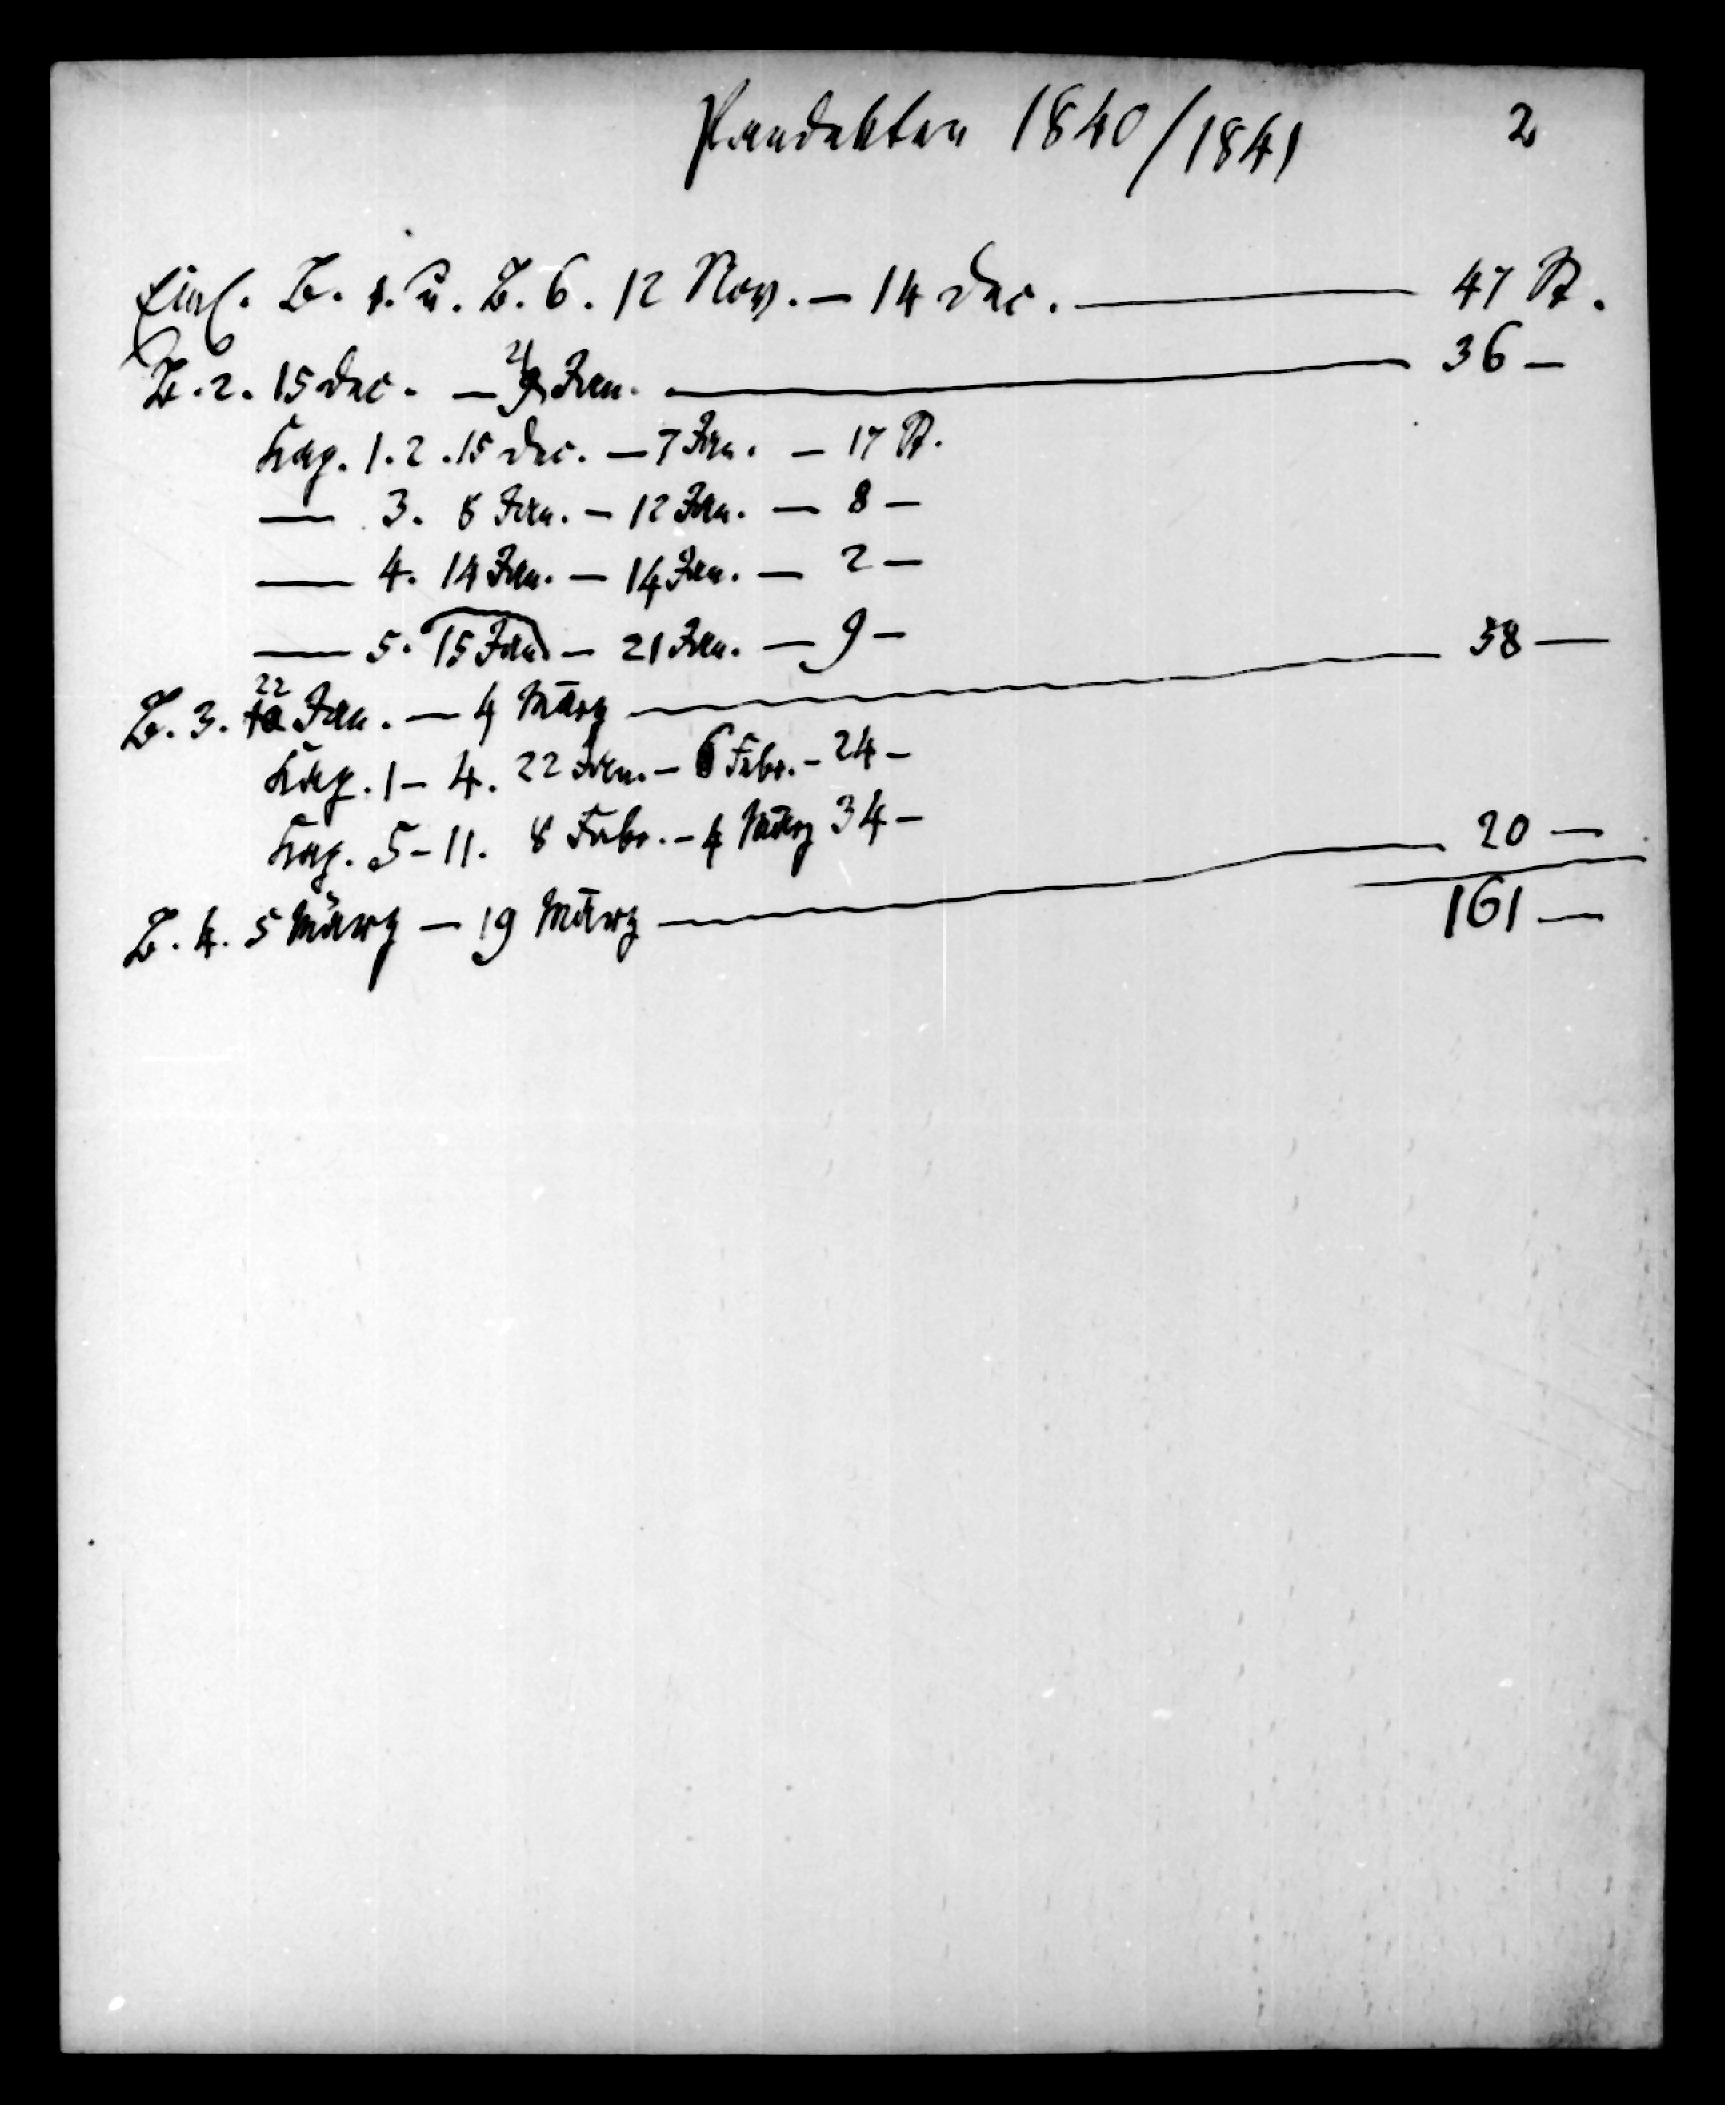 Pandekten 1840/1841 2
Einl. B. 1. u. B. 6. 12 Nov. — 14 Dec. — 47 St.
B. 2. 15 Dec. — 21 Jan. — 36 —
Kap. 1. 2. 15 Dec. — 7 Jan. — 17 St.
— 3. 8 Jan. — 12 Jan. — 8 —
— 4. 14 Jan. — 14 Jan. — 2 —
— 5. 15 Jan — 21 Jan. — 9 —
B. 3. 22 Jan. — 4 März — 58 —
Kap. 1 – 4. 22 Jan. — 6 Febr. — 24 —
Kap. 5 – 11. 8 Febr. — 4 März 34 —
B. 4. 5 März — 19 März — 20 —
161 —